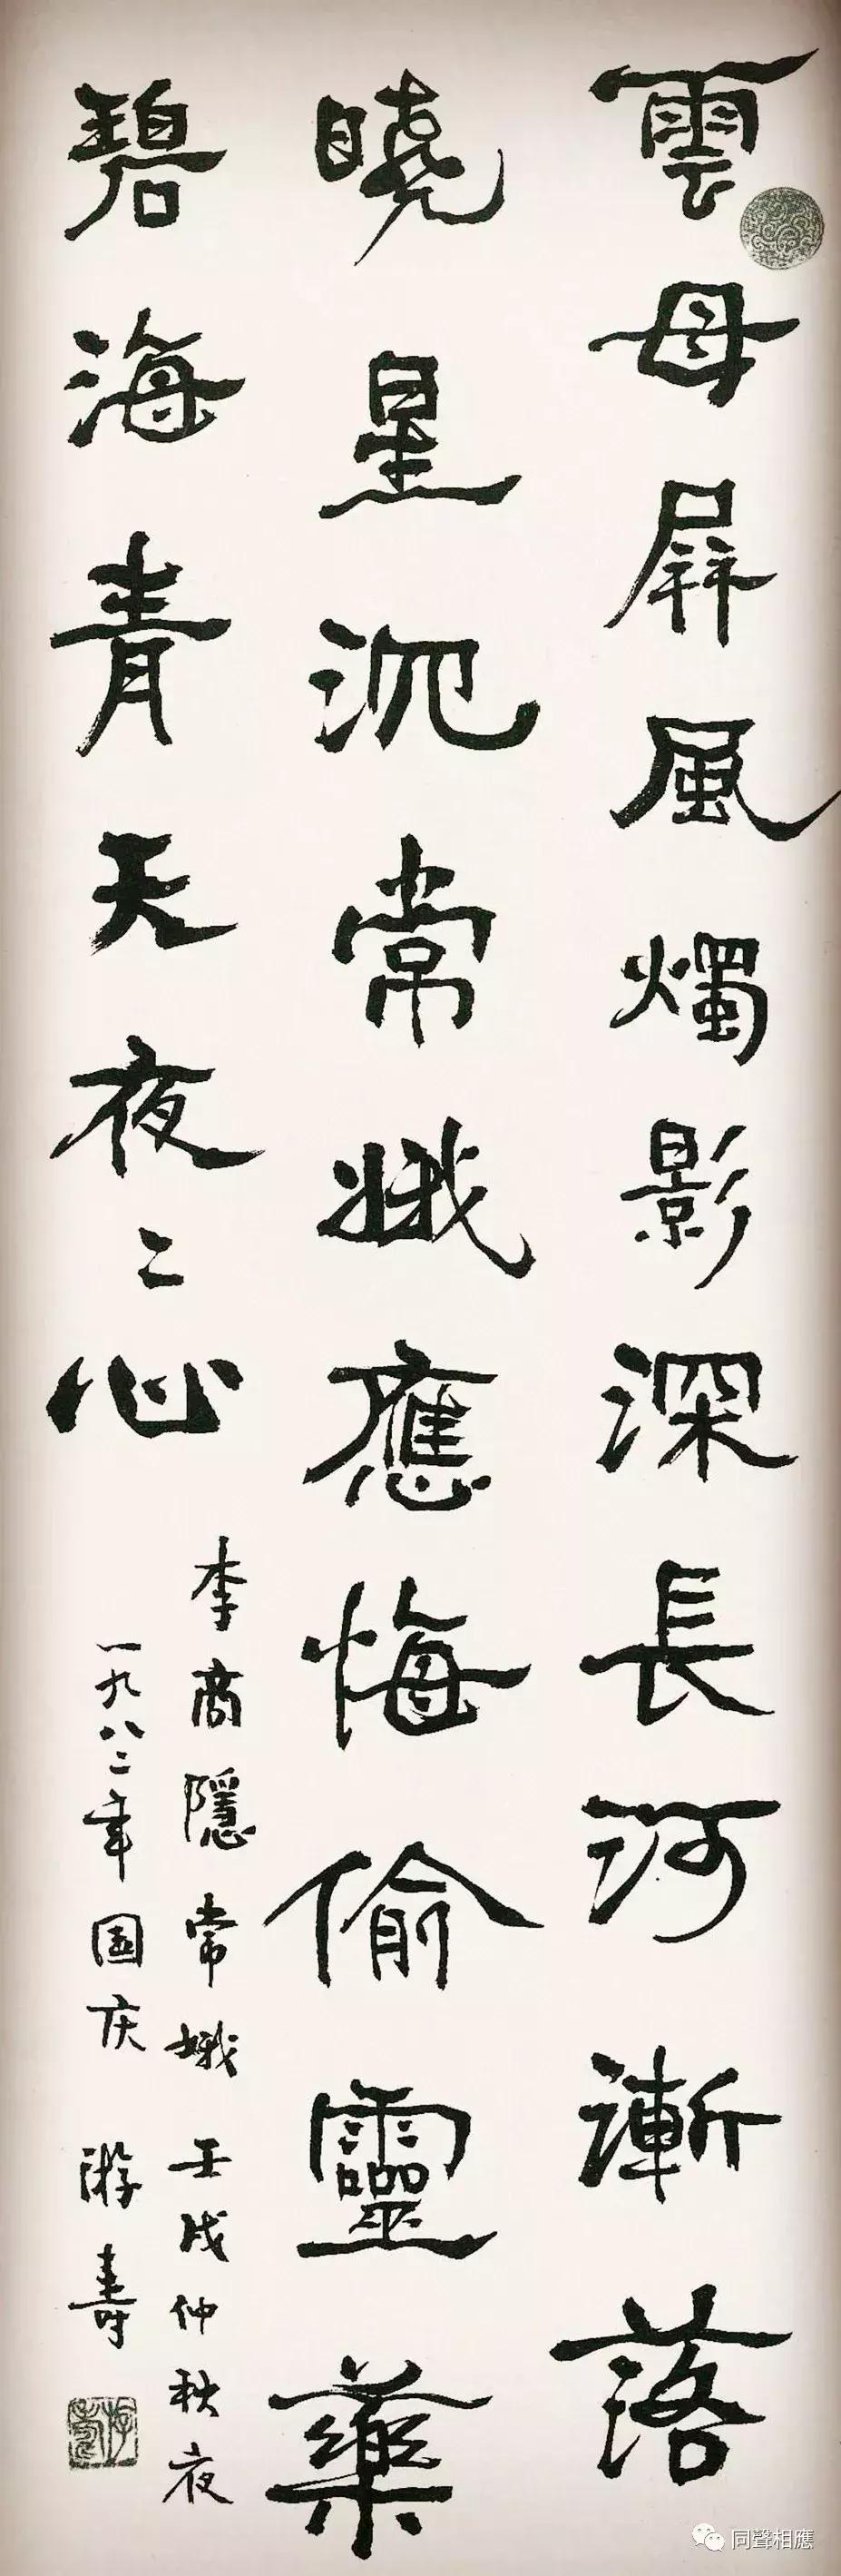 雲母屏風燭影深長河漸落
曉星沉常娥應悔偷靈藥
碧海青天夜〻心
李商隱常娥 壬戌仲秋夜
一九八二年国庆 游寿
游壽
同聲相應